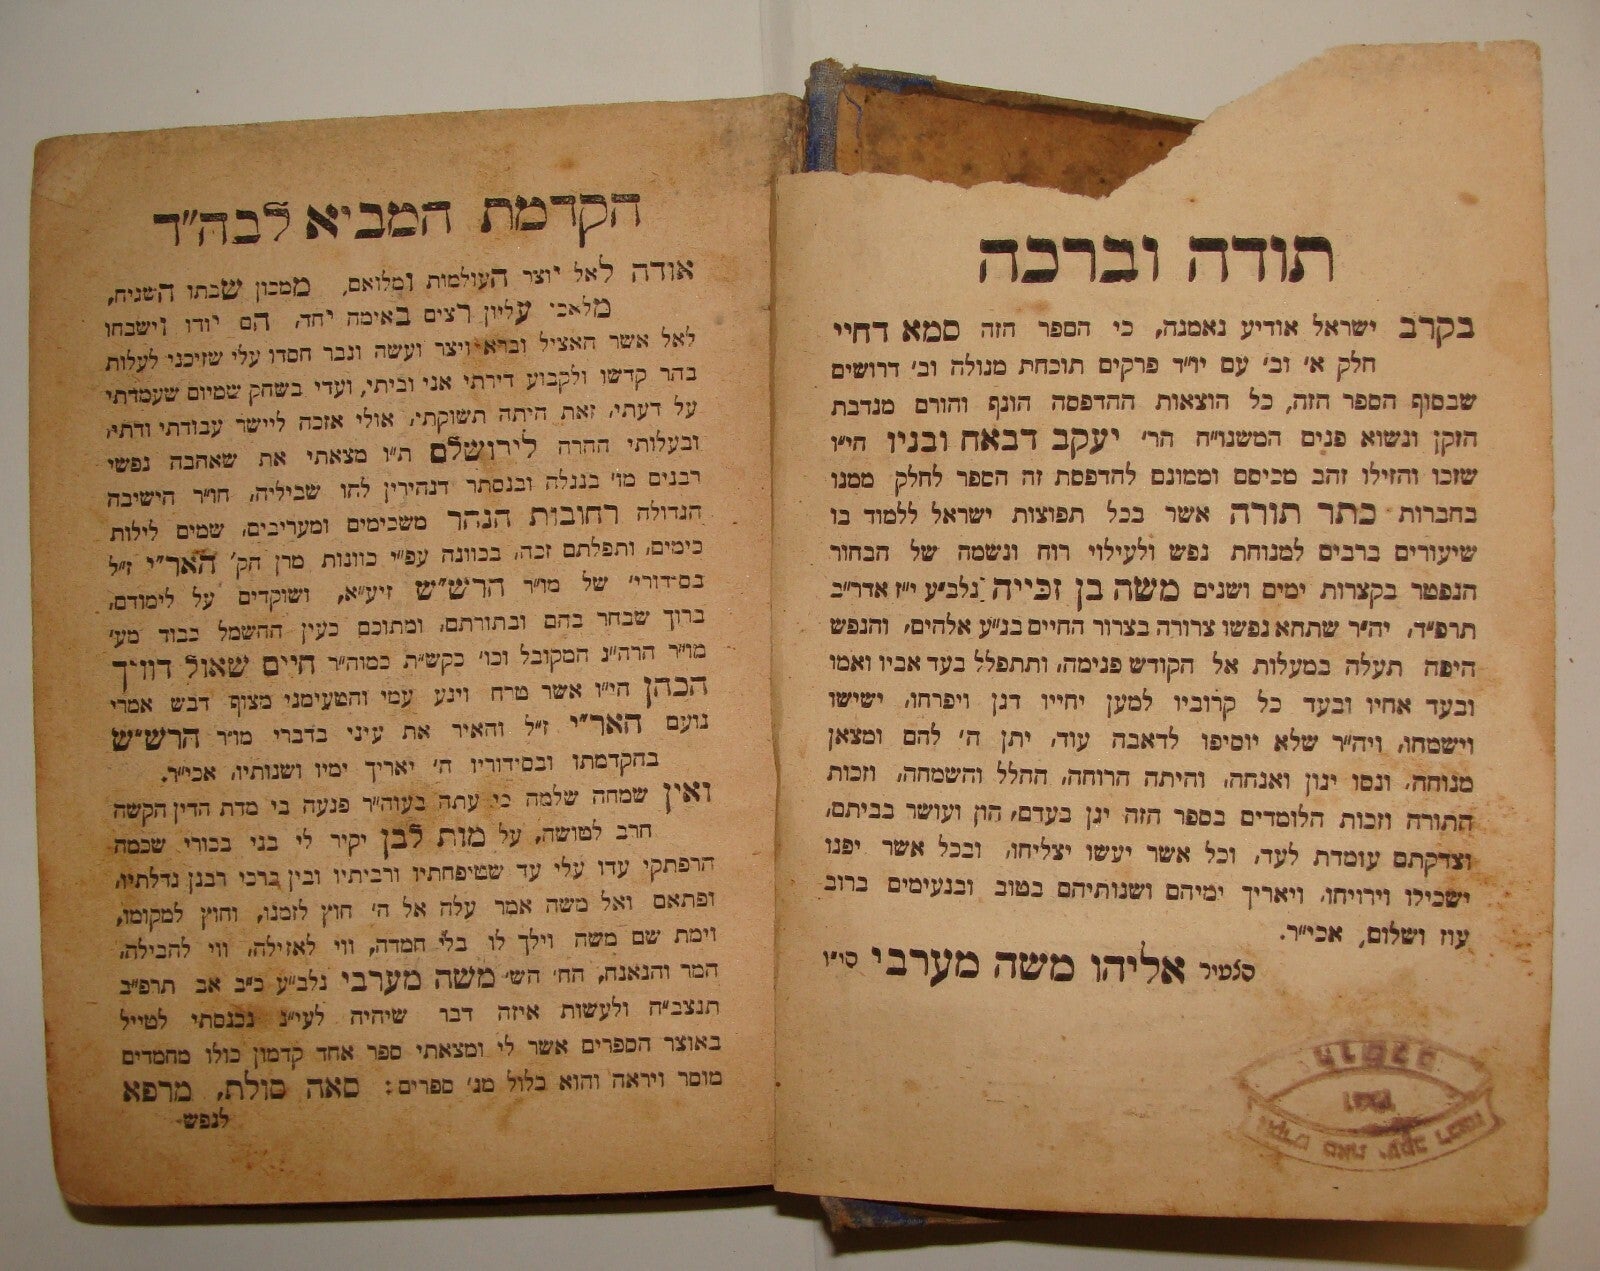 תודה וברכה
בקרב ישראל אודיע נאמנה, כי הספר הזה סמא דחיי
חלק א׳ וב׳ עם יו״ד פרקים תוכחת מגולה וב׳ דרושים
שבסוף הספר הזה, כל הוצאות ההדפסה הונף והורם מנדבת
הזקן ונשוא פנים המשנו״ח הר׳ יעקב דבאח ובניו הי״ו
שזכו והזילו זהב מכיסם וממונם להדפסת זה הספר לחלק ממנו
בחברות כתר תורה אשר בכל תפוצות ישראל ללמוד בו
שיעורים ברבים למנוחת נפש ולעילוי רוח ונשמה של הבחור
הנפטר בקצרות ימים ושנים משה בן זכייה נלב״ע י״ז אדר״ב
תרפ״ד, יה״ר שתהא נפשו צרורה בצרור החיים בג״ע אלהים, והנפש
היפה תעלה במעלות אל הקודש פנימה, ותתפלל בעד אביו ואמו
ובעד אחיו ובעד כל קרוביו למען יחייו דגן ויפרחו, ישישו
וישמחו, ויה״ר שלא יוסיפו לדאבה עוד, יתן ה׳ להם ומצאן
מנוחה, ונסו יגון ואנחה, והיתה הרוחה, ההלל והשמחה, וזכות
התורה וזכות הלומדים בספר הזה יגן בעדם, הון ועושר בביתם,
וצדקתם עומדת לעד, וכל אשר יעשו יצליחו, ובכל אשר יפנו
ישכילו וירויחו, ויאריך ימיהם ושנותיהם בטוב ובנעימים ברוב
עוז ושלום, אכי״ר.
אליהו משה מערבי סי״ו
הקדמת המביא לבה״ד
אודה לאל יוצר העולמות ומלואם, ממכון שבתו השגיח,
מלאכי עליון רצים באימה יחד, הם יודו וישבחו
לאל אשר האציל וברא ויצר ועשה וגבר חסדו עלי שזיכני לעלות
בהר קדשו ולקבוע דירתי אני וביתי, ועדי בשחק שמיום שעמדתי
על דעתי, זאת היתה תשוקתי, אולי אזכה ליישר עבודתי ודתי,
ובעלותי ההרה לירושלם ת״ו מצאתי את שאהבה נפשי
רבנים מו׳ בנגלה ובנסתר דנהירין להו שביליה, חו״ר הישיבה
הגדולה רחובות הנהר משכימים ומעריבים, שמים לילות
כימים, ותפלתם זכה, בכוונה עפ״י כוונות מרן הק׳ האר״י ז״ל
בסידורי׳ של מו״ר הרש״ש זיע״א, ושוקדים על לימודם,
ברוך שבחר בהם ובתורתם, ומתוכם כעין החשמל כבוד מע׳
מו״ר הרה״ג המקובל וכו׳ כקש״ת כמוה״ר חיים שאול דוויך
הכהן הי״ו אשר טרח ויגע עמי והטעימני מצוף דבש אמרי
נועם האר״י ז״ל והאיר את עיני בדברי מו״ר הרש״ש
בהקדמתו ובסידוריו ה׳ יאריך ימיו ושנותיו, אכי״ר.
ואין שמחה שלמה כי עתה בעוה״ר פגעה בי מדת הדין הקשה
חרב לטושה, על מות לבן יקיר לי בני בכורי שכמה
הרפתקי עדו עלי עד שטיפחתיו ורביתיו ובין ברכי רבנן גדלתיו,
ופתאם ואל משה אמר עלה אל ה׳ חוץ לזמנו, וחוץ למקומו,
וימת שם משה וילך לו בלי חמדה, ווי לאזילה, ווי להבילה,
המר והנאנח, הח׳ הש׳ משה מערבי נלב״ע כ״ב אב תרפ״ב
תנצב״ה ולעשות איזה דבר שיהיה לעי״נ נכנסתי לטייל
באוצר הספרים אשר לי ומצאתי ספר אחד קדמון כולו מחמדים
מוסר ויראה והוא בלול מג׳ ספרים: סאה סולת, מרפא
לנפש